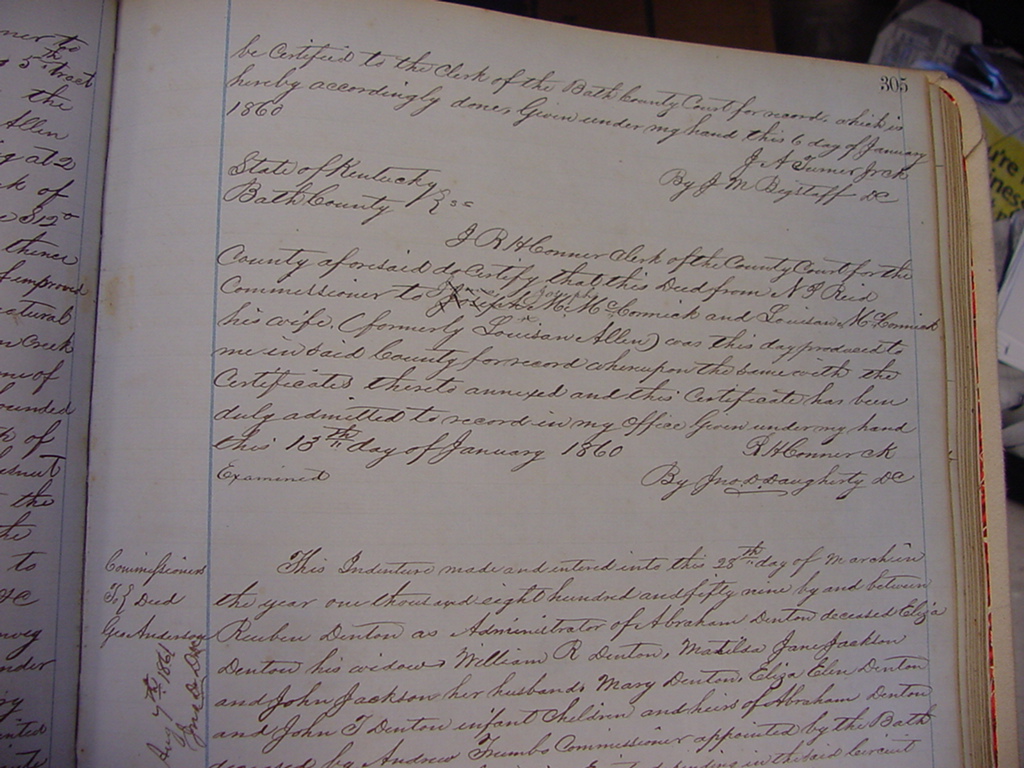 305
be Certified to the Clerk of the Bath County Court for record which is
hereby accordingly done, Given under my hand this 6 day of January
1860
J. A. Turner Jr ck
By J M Bigstaff DC
State of Kentucky
Bath County
I R H Conner Clerk of the County Court for the
County aforesaid do Certify that this Deed from N J Reid
Commissioner to Joseph H. McCormick and Louisan McCormick
his wife. (formerly Louisan Allen) was this day produced to
me in said County for record whereupon the same with the
Certificates thereto annexed and this Certificate has been
duly admitted to record in my Office Given under my hand
this 13th day of January 1860
R H Conner ck
Examined
By Jno. D. Daugherty DC
Commissioners
To } Deed
Geo Anderson
Aug 7th 1861
This Indenture made and entered into this 28th day of March in
the year one thousand eight hundred and fifty nine by and between
Reuben Denton as Administrator of Abraham Denton deceased Eliza
Denton his widow, William R Denton, Matilda Jane Jackson
and John Jackson her husband, Mary Denton, Eliza Elen Denton
and John T Denton infant Children and heirs of Abraham Denton
deceased by Andrew Trumbo Commissioner appointed by the Bath
pending in the said Circuit
ner to
5th tract
the
Allen
g at 2
k of
thence
f improved
natural
n Creek
me of
bounded
of
the
the
to
&C
under